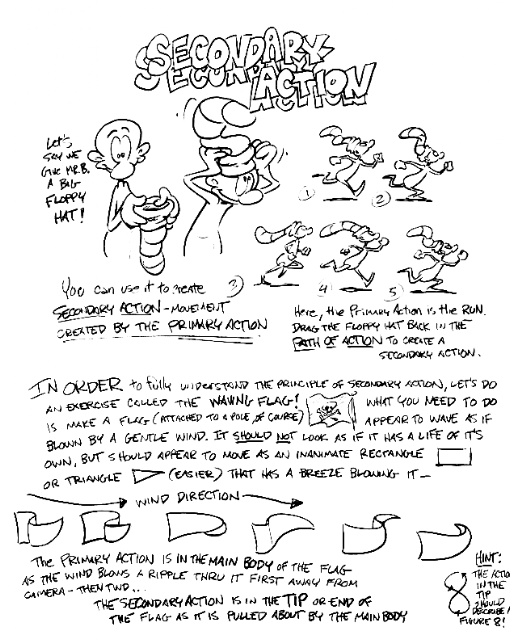 SECONDARY
ACTION
Let's
SAY WE
GIVE MR. B.
A BIG
FLOPPY
HAT!
1
2
3
4
5
You can use it to create
SECONDARY ACTION - MOVEMENT
CREATED BY THE PRIMARY ACTION
Here, the Primary Action is the RUN.
DRAG THE FLOPPY HAT BACK IN THE
PATH OF ACTION TO CREATE A
SECONDARY ACTION.
IN ORDER to fully UNDERSTAND THE PRINCIPLE OF SECONDARY ACTION, LET'S DO
AN EXERCISE CALLED THE WAVING FLAG! WHAT YOU NEED TO DO
IS MAKE A FLAG (ATTACHED TO A POLE, OF COURSE) APPEAR TO WAVE AS IF
BLOWN BY A GENTLE WIND. IT SHOULD NOT LOOK AS IF IT HAS A LIFE OF IT'S
OWN, BUT SHOULD APPEAR TO MOVE AS AN INANIMATE RECTANGLE
OR TRIANGLE (EASIER) THAT HAS A BREEZE BLOWING IT —
WIND DIRECTION
The PRIMARY ACTION IS IN THE MAIN BODY OF THE FLAG
AS THE WIND BLOWS A RIPPLE THRU IT FIRST AWAY FROM
CAMERA - THEN TWD...
THE SECONDARY ACTION IS IN THE TIP OR END OF
THE FLAG AS IT IS PULLED ABOUT BY THE MAIN BODY
HINT:
THE ACTION
IN THE
TIP
SHOULD
DESCRIBE A
FIGURE 8!